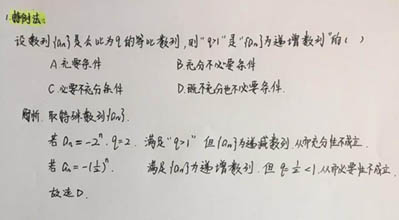 1.特例法:
设数列{an}是公比为q的等比数列,则“q>1”是“{an}为递增数列”的( )
A.充要条件 B.充分不必要条件
C.必要不充分条件 D.既不充分也不必要条件.
解析:取特殊数列{an}.
若an=-2^n,q=2.满足“q>1”但{an}为递减数列,从而充分性不成立.
若an=-(1/2)^n. 满足{an}为递增数列.但q=1/2<1,从而必要性不成立.
故选D.